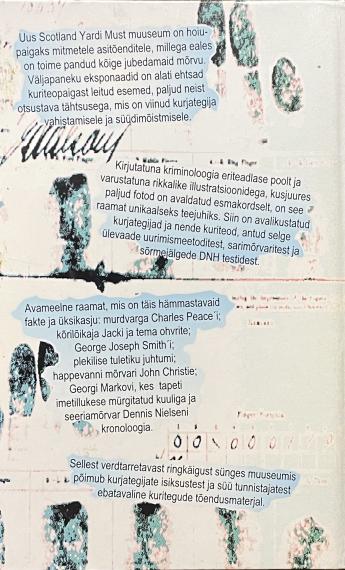 Uus Scotland Yardi Must muuseum on hoiu-
paigaks mitmetele asitõenditele, millega eales
on toime pandud kõige jubedamaid mõrvu.
Väljapaneku eksponaadid on alati ehtsad
kuriteopaigast leitud esemed, paljud neist
otsustava tähtsusega, mis on viinud kurjategija
vahistamisele ja süüdimõistmisele.
Kirjutatuna kriminoloogia eriteadlase poolt ja
varustatuna rikkalike illustratsioonidega, kusjuures
paljud fotod on avaldatud esmakordselt, on see
raamat unikaalseks teejuhiks. Siin on avalikustatud
kurjategijad ja nende kuriteod, antud selge
ülevaade uurimismeetoditest, sarimõrvaritest ja
sõrmejälgede DNH testidest.
Avameelne raamat, mis on täis hämmastavaid
fakte ja üksikasju: murdvarga Charles Peace´i;
kõrilõikaja Jacki ja tema ohvrite;
George Joseph Smith´i;
plekilise tuletiku juhtumi;
happevanni mõrvari John Christie;
Georgi Markovi, kes tapeti
imetillukese mürgitatud kuuliga ja
seeriamõrvar Dennis Nielseni
kronoloogia.
Sellest verdtarretavast ringkäigust sünges muuseumis
põimub kurjategijate isiksustest ja süü tunnistajatest
ebatavaline kuritegude tõendusmaterjal.